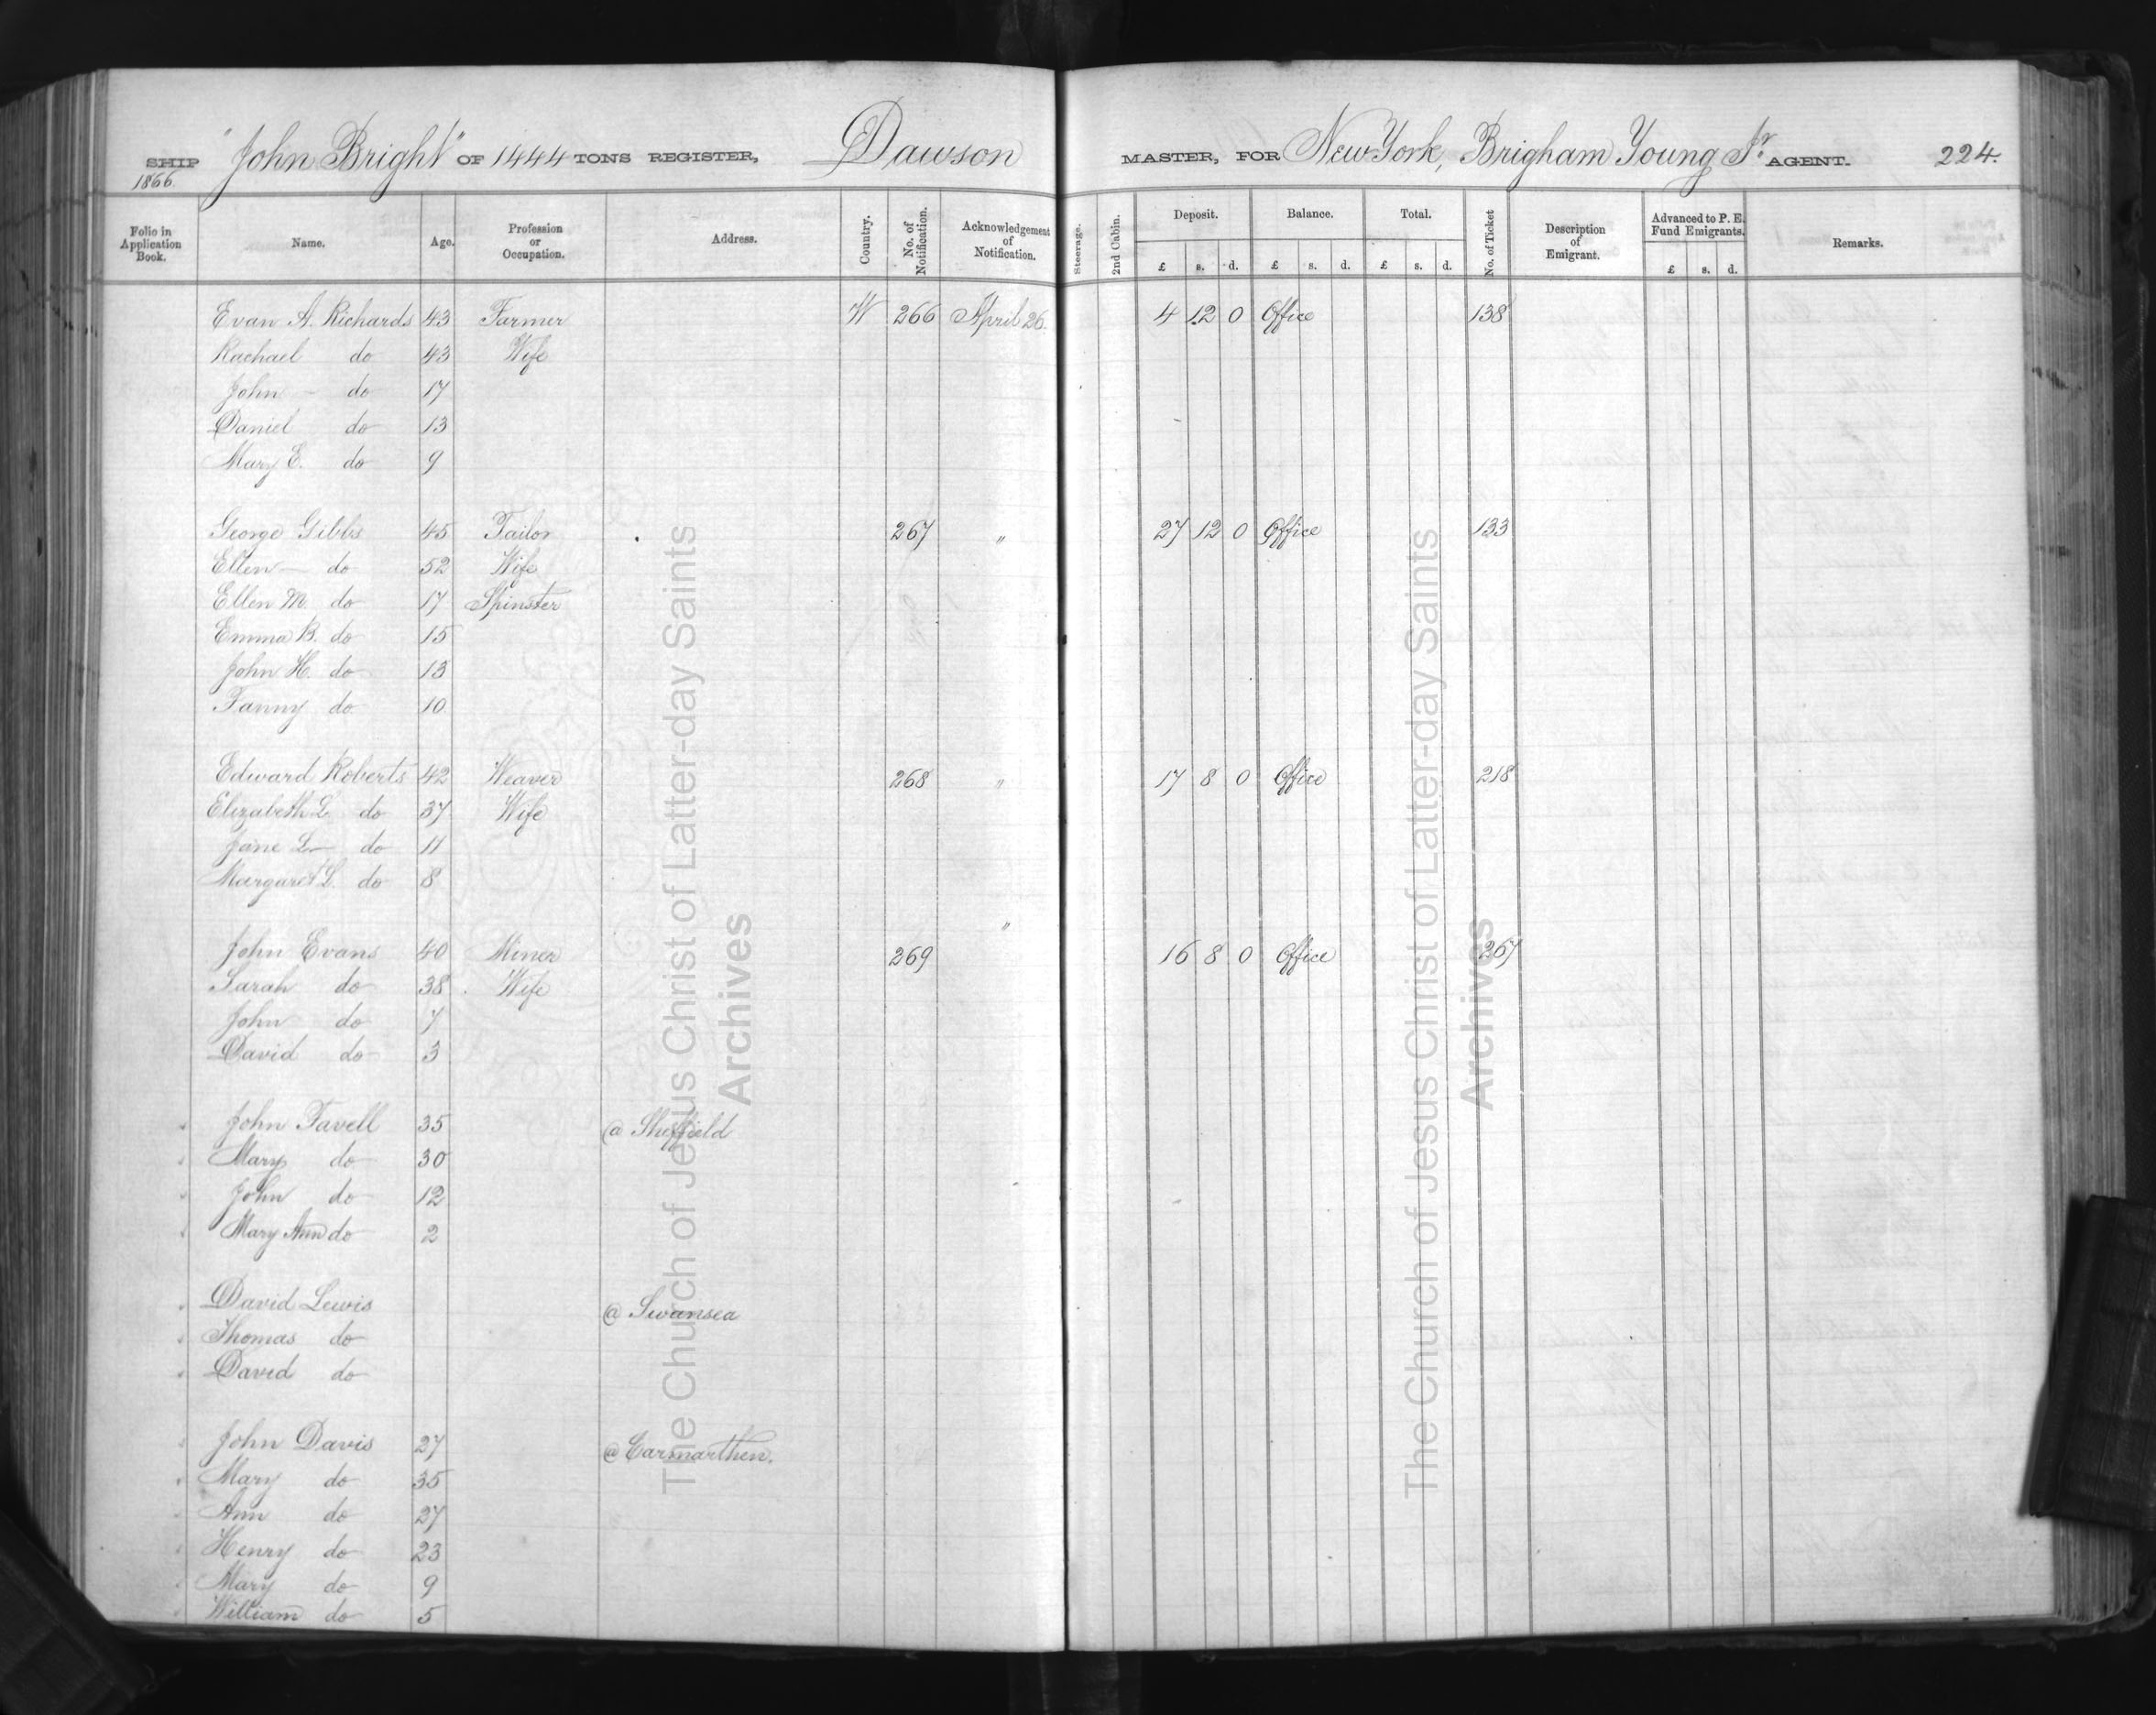 SHIP "John Bright" OF 1444 TONS REGISTER, Dawson MASTER, FOR New York, Brigham Young Jr. AGENT. 224.
1866
Folio in Application Book. Name. Age. Profession or Occupation. Address. Country. No. of Notification. Acknowledgement of Notification. Steerage. 2nd Cabin. Deposit. £ s. d. Balance. £ s. d. Total. £ s. d. No. of Ticket Description of Emigrant. Advanced to P. E. Fund Emigrants. £ s. d. Remarks.
Evan A. Richards 43 Farmer W 266 April 26. 4 12 0 Office 138
Rachael do 43 Wife
John — do 17
Daniel do 13
Mary E. do 9
George Gibbs 45 Tailor 267 " 27 12 0 Office 133
Ellen — do 52 Wife
Ellen M. do 17 Spinster
Emma B. do 15
John H. do 13
Fanny do 10
Edward Roberts 42 Weaver 268 " 17 8 0 Office 218
Elizabeth L. do 37 Wife
Jane L— do 11
Margaret L. do 8
John Evans 40 Miner 269 " 16 8 0 Office 267
Sarah do 38 Wife
John do 7
David do 3
John Favell 35 @ Sheffield
Mary do 30
John do 12
Mary Ann do 2
David Lewis @ Swansea
Thomas do
David do
John Davis 27 @ Carmarthen.
Mary do 35
Ann do 27
Henry do 23
Mary do 9
William do 5
The Church of Jesus Christ of Latter-day Saints
Archives
The Church of Jesus Christ of Latter-day Saints
Archives